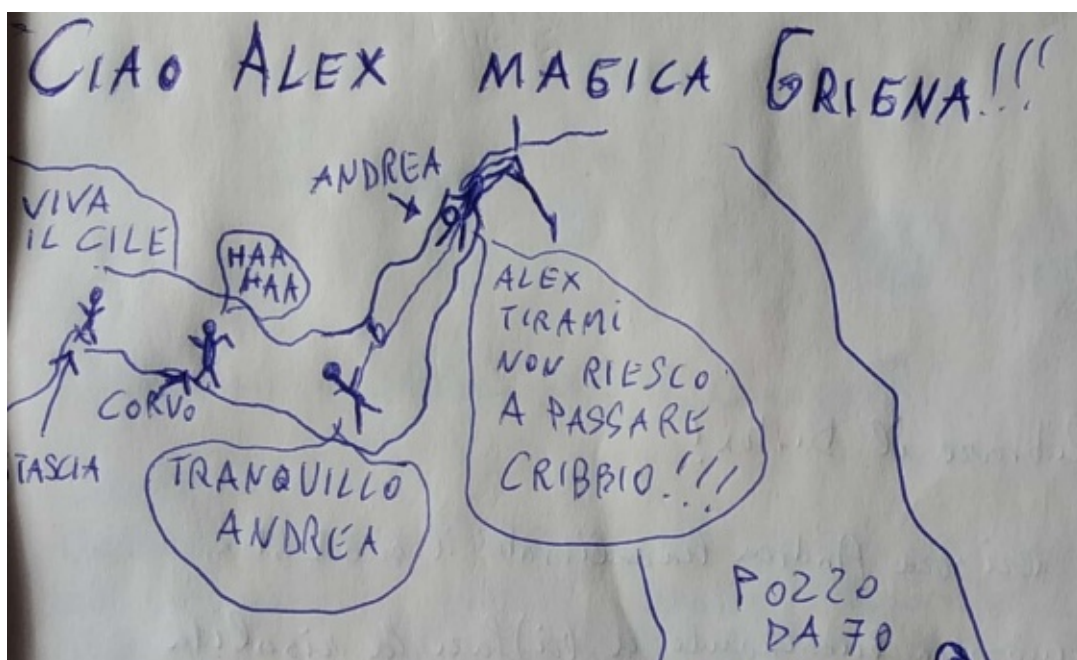 CIAO ALEX MAGICA GRIGNA!!!
ANDREA
VIVA
IL CILE
HAA
HAA
ALEX
TIRAMI
NON RIESCO
A PASSARE
CRIBBIO!!!
CORVO
TASCIA
TRANQUILLO
ANDREA
POZZO
DA 70